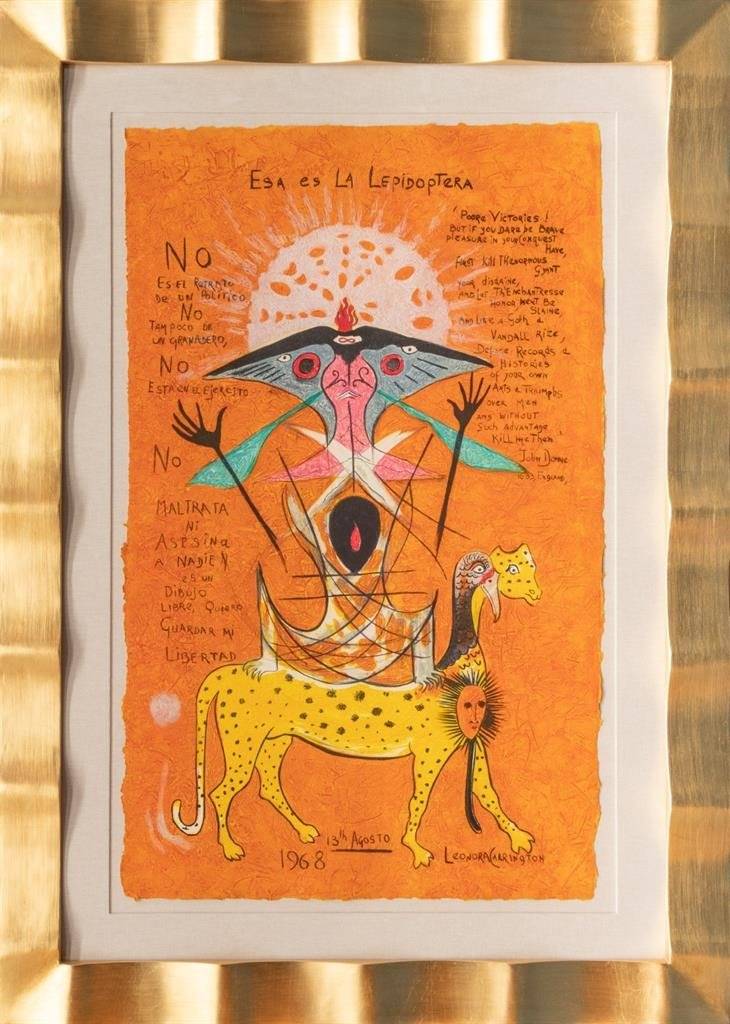 Esa es LA Lepidoptera
No
Es el Retrato
de un Politico,
No
Tampoco de
un Granadero,
No
Esta en el Ejercito
No
Maltrata
ni
Asesina
a Nadie
es un
Dibujo
Libre, Quiero
Guardar mi
Libertad
"Poore Victories!
But if you dare be Brave
pleasure in your Conquest
Have,
First kill Th'enormous
Gyant
your disdaine,
And let Th'Enchantresse
Honor Next Be
Slaine,
And Like a Goth &
Vandall Rize,
Deface Records &
Histories
of your own
Arts & Triumphs
over Men
and without
Such advantage
Kill me Then"
John Donne
England,
13th Agosto
1968
Leonora Carrington